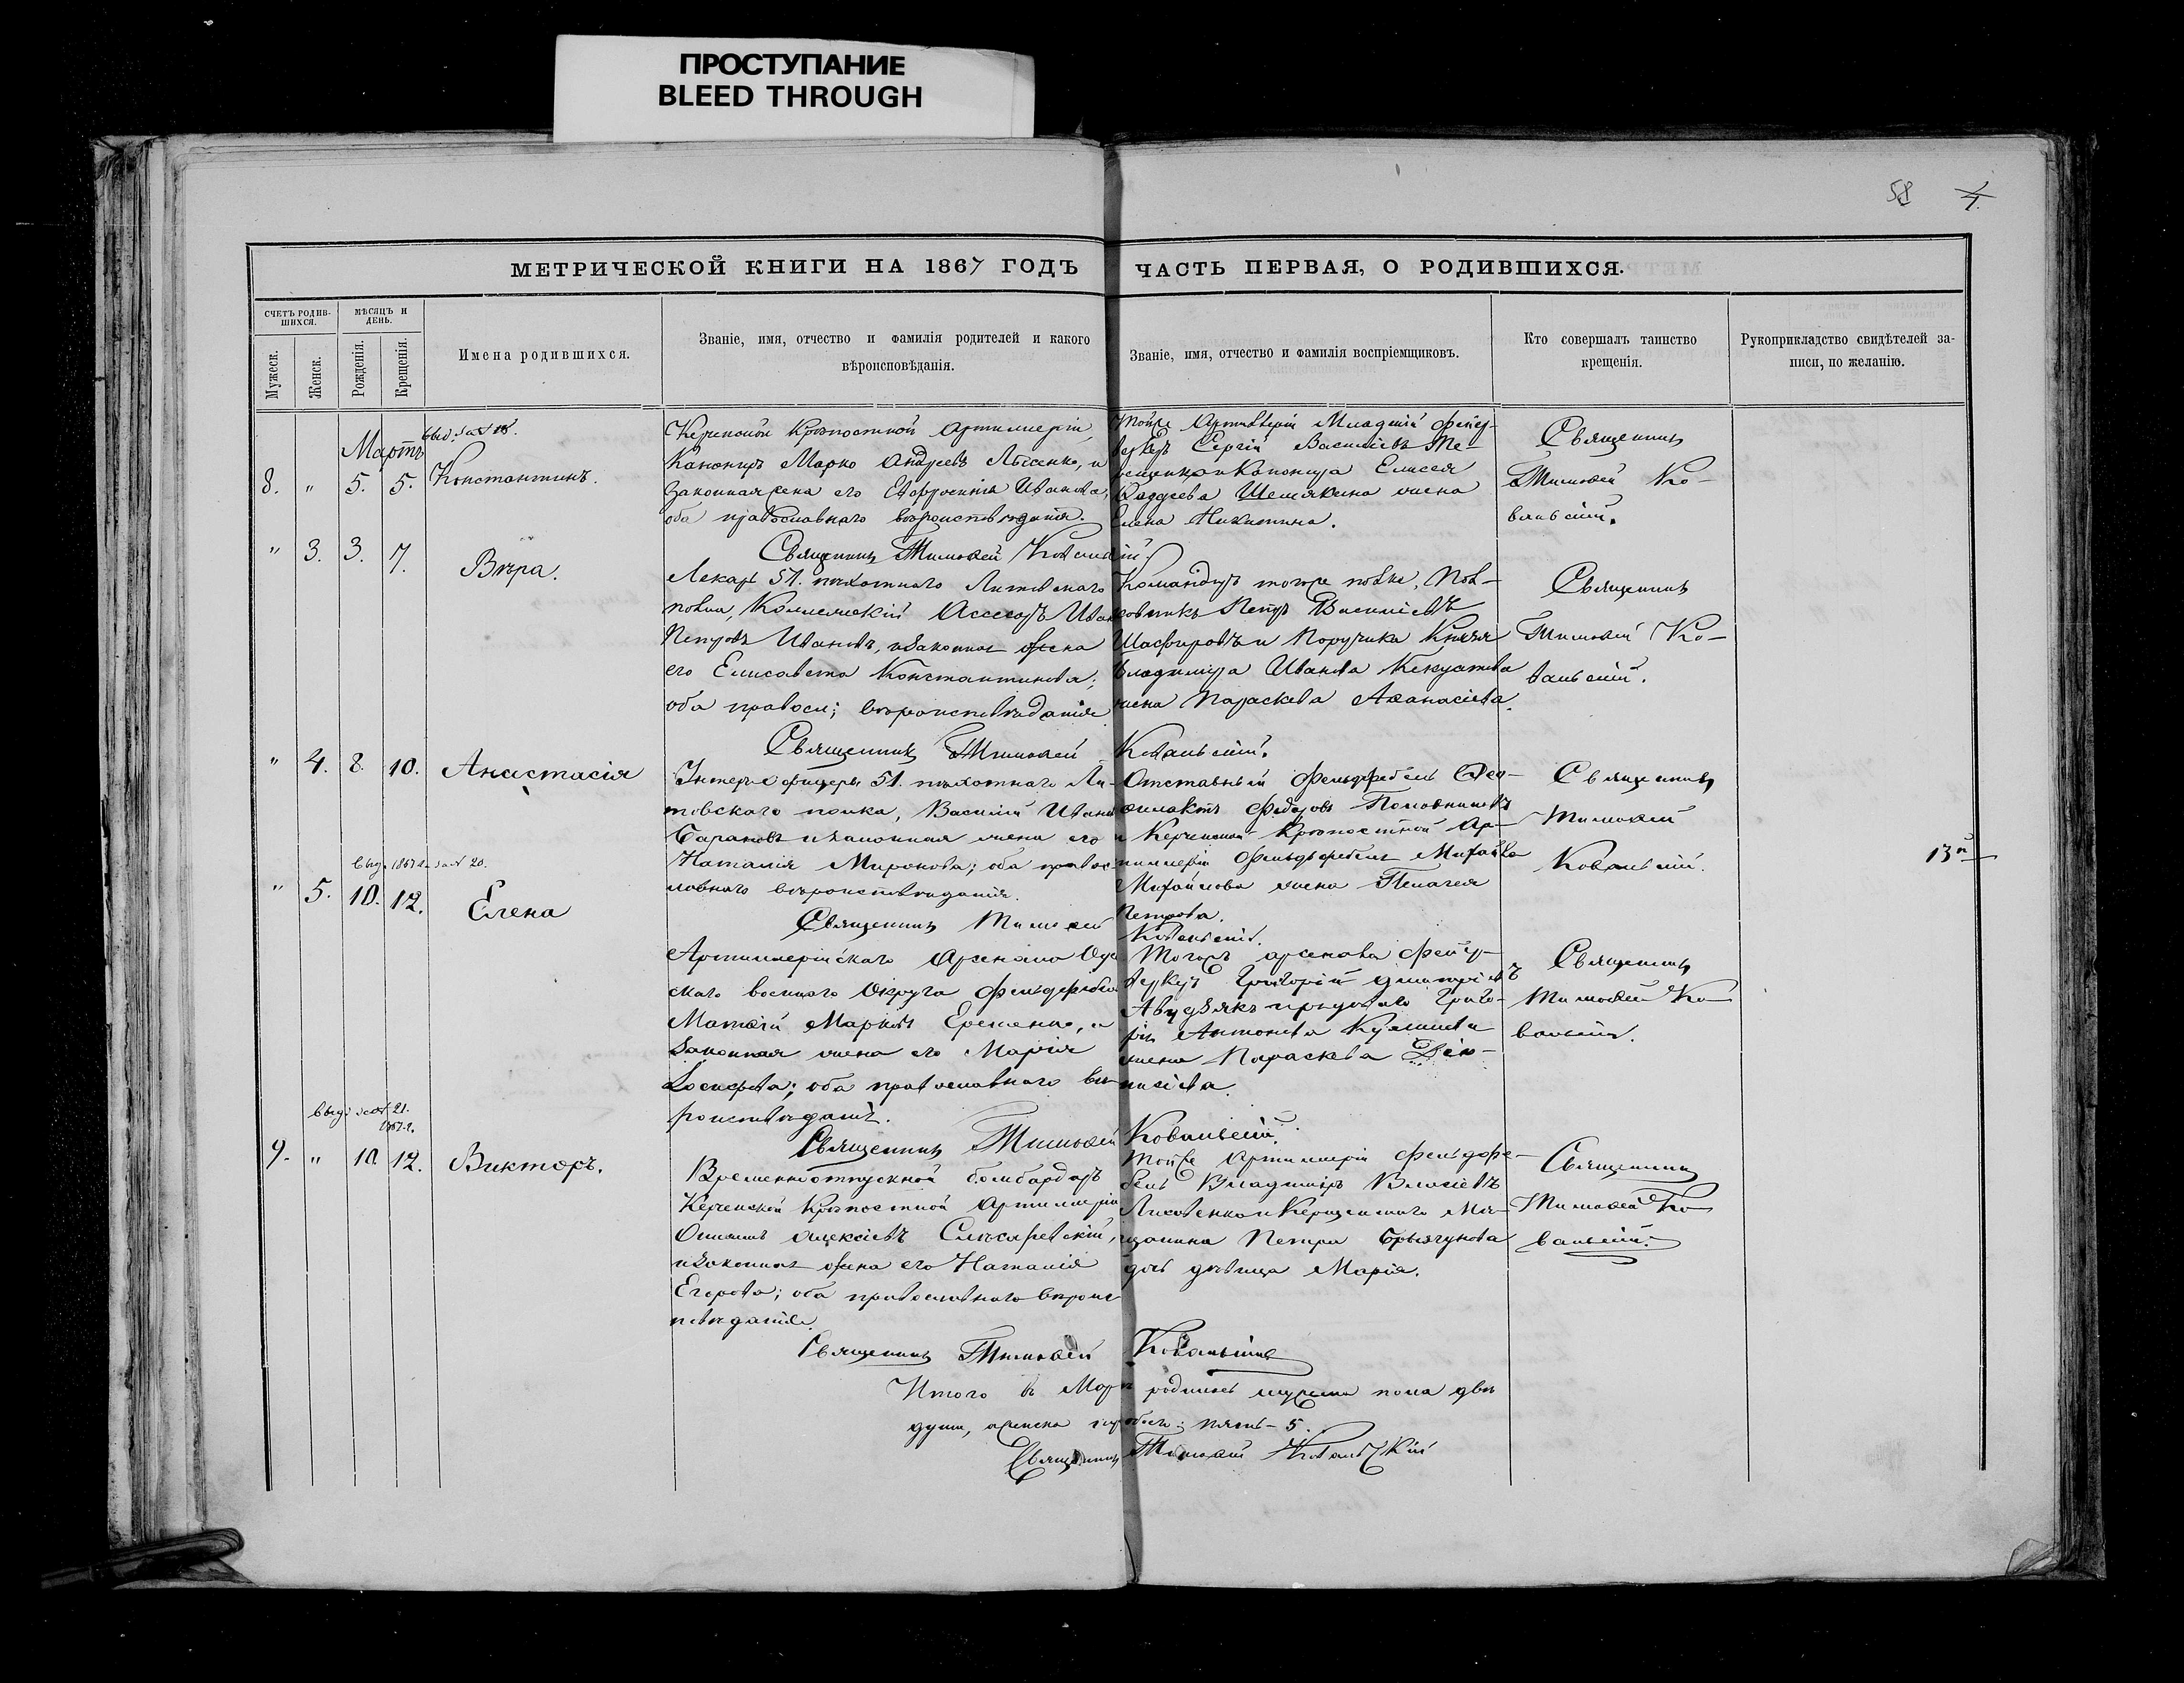 ПРОСТУПАНИЕ
BLEED THROUGH
58
4.
МЕТРИЧЕСКОЙ КНИГИ НА 1867 ГОДЪ
ЧАСТЬ ПЕРВАЯ, О РОДИВШИХСЯ.
СЧЕТЪ РОДИВ-
ШИХСЯ.
МѢСЯЦЪ И
ДЕНЬ.
Мужеск.
Женск.
Рожденія.
Крещенія.
Имена родившихся.
Званіе, имя, отчество и фамилія родителей и какого
вѣроисповѣданія.
Званіе, имя, отчество и фамилія воспріемщиковъ.
Кто совершалъ таинство
крещенія.
Рукоприкладство свидѣтелей за-
писи, по желанію.
Мартъ
8. " 5. 5. Константинъ.
Керченской Крѣпостной Артиллеріи
Канониръ Марко Андреевъ Лысенко, и
законная жена его Евфросинія Иванова,
оба православнаго вѣроисповѣданія.
Тойже Артиллеріи Младшій фейер-
веркеръ Сергій Васильевъ
и Канонира Елисея
Фаддеева Шемякина жена
Елена Никитина.
Священникъ
Тимофей Ко-
вальскій.
Священникъ Тимофей Ковальскій.
" 3. 3. 7. Вѣра.
Лекарь 51. пѣхотнаго Литовскаго
полка, Коллежскій Ассесоръ Иванъ
Петровъ Ивановъ, и законная жена
его Елисавета Константинова;
оба правосл; вѣроисповѣданія
Командиръ тогоже полка, Пол-
ковникъ Петръ Васильевъ
Шафировъ и Поручика Князя
Владиміра Иванова Кекуатова
жена Параскева Афанасіева.
Священникъ
Тимофей Ко-
вальскій.
Священникъ Тимофей Ковальскій.
" 4. 8. 10. Анастасія
Унтеръ-офицеръ 51. пѣхотнаго Ли-
товскаго полка, Василій Ивановъ
Барановъ и законная жена его
Наталія Миронова; оба правос-
лавнаго вѣроисповѣданія.
Отставный фельдфебель Фео-
филактъ Федоровъ Половниковъ
и Керченской Крѣпостной Ар-
тиллеріи фельдфебеля Михаила
Михайлова жена Пелагея
Петрова.
Священникъ
Тимофей
Ковальскій.
Священникъ Тимофей Ковальскій.
" 5. 10. 12. Елена
Артиллерійскаго Арсенала Оде-
скаго военнаго Округа фельдфебель
Матвѣй Марковъ Еременко, и
законная жена его Марія
Іосифова; оба православнаго вѣ-
роисповѣданія.
Тогожъ арсенала фейер-
веркеръ Григорій Дмитріевъ
рядоваго Григо-
рія Антонова
жена Параскева Діо-
нисіева.
Священникъ
Тимофей Ко-
вальскій.
13
Священникъ Тимофей Ковальскій.
9. " 10. 12. Викторъ.
Временноотпускной бомбардиръ
Керченской Крѣпостной Артиллеріи
Алексіевъ
и законная жена его Наталія
Егорова; оба православнаго вѣроис-
повѣданія.
Тойже Артиллеріи фельдфе-
бель Владиміръ Власіевъ
Лисовенко и Керченскаго Мѣ-
щанина Петра
дочь дѣвица Марія.
Священникъ
Тимофей Ко-
вальскій.
Священникъ Тимофей Ковальскій
Итого въ Мартѣ родилось мужеска пола двѣ
души, женска три, обоего: пять - 5.
Священникъ Тимофей Ковальскій